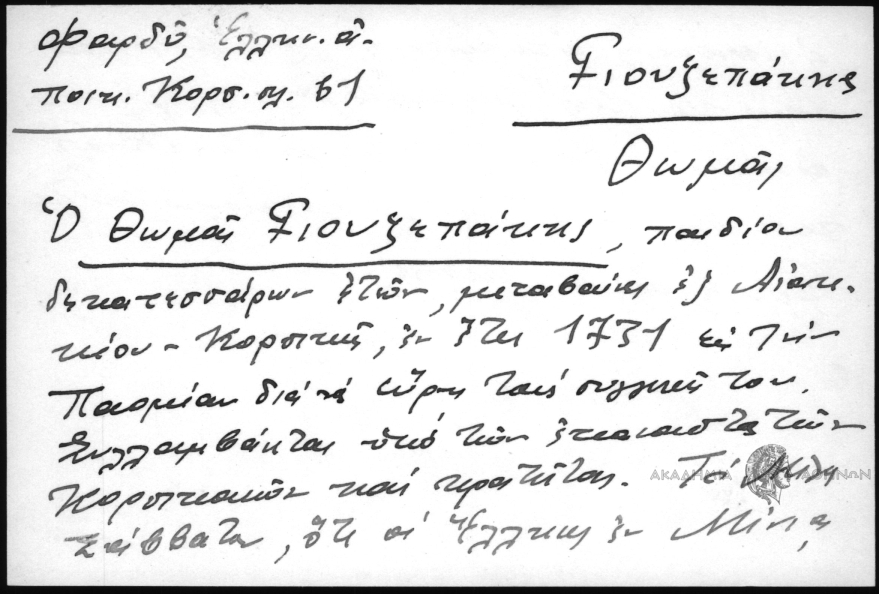 Φαρδῦ, Ἑλλην. ἀ-
ποικ. Κορσ. σλ. 61
Γιουζεπάκης
Θωμᾶς
Ὁ Θωμᾶς Γιουζεπάκης, παιδίον
δεκατεσσάρων ἐτῶν, μεταβαίνει ἐξ Αἰακ-
κείου-Κορσικῆς, ἐν ἔτει 1731 εἰς τὴν
Παομίαν διὰ νὰ εὕρῃ τοὺς συγγενεῖς του.
Συλλαμβάνεται ὑπὸ τῶν ἐπαναστατῶν
Κορσικανῶν καὶ κρατεῖται. Τὸ Μέγα
Σάββατον, ὅτε οἱ Ἕλληνες ἐν
ΑΚΑΔΗΜΙΑ ΑΘΗΝΩΝ